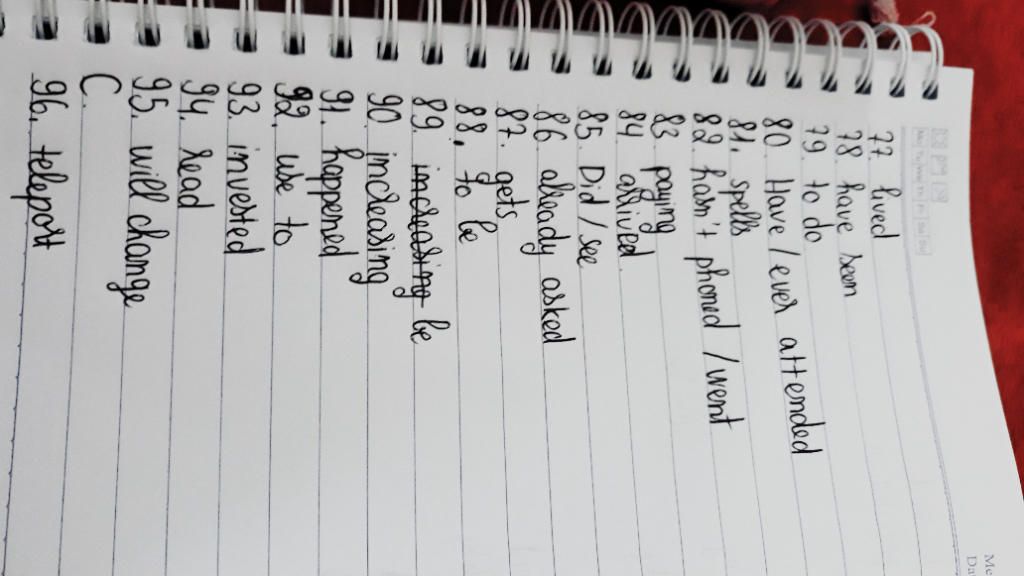 77 lived
78 have seen
79. to do
80 Have / ever attended
81. spells
82 hasn't phoned / went
83 paying
84 arrived.
85. Did / see
86 already asked
87. gets
88. to be
89. increasing be
90 increasing
91. happened
92. use to
93. invested
94. read
95. will change
C.
96. teleport